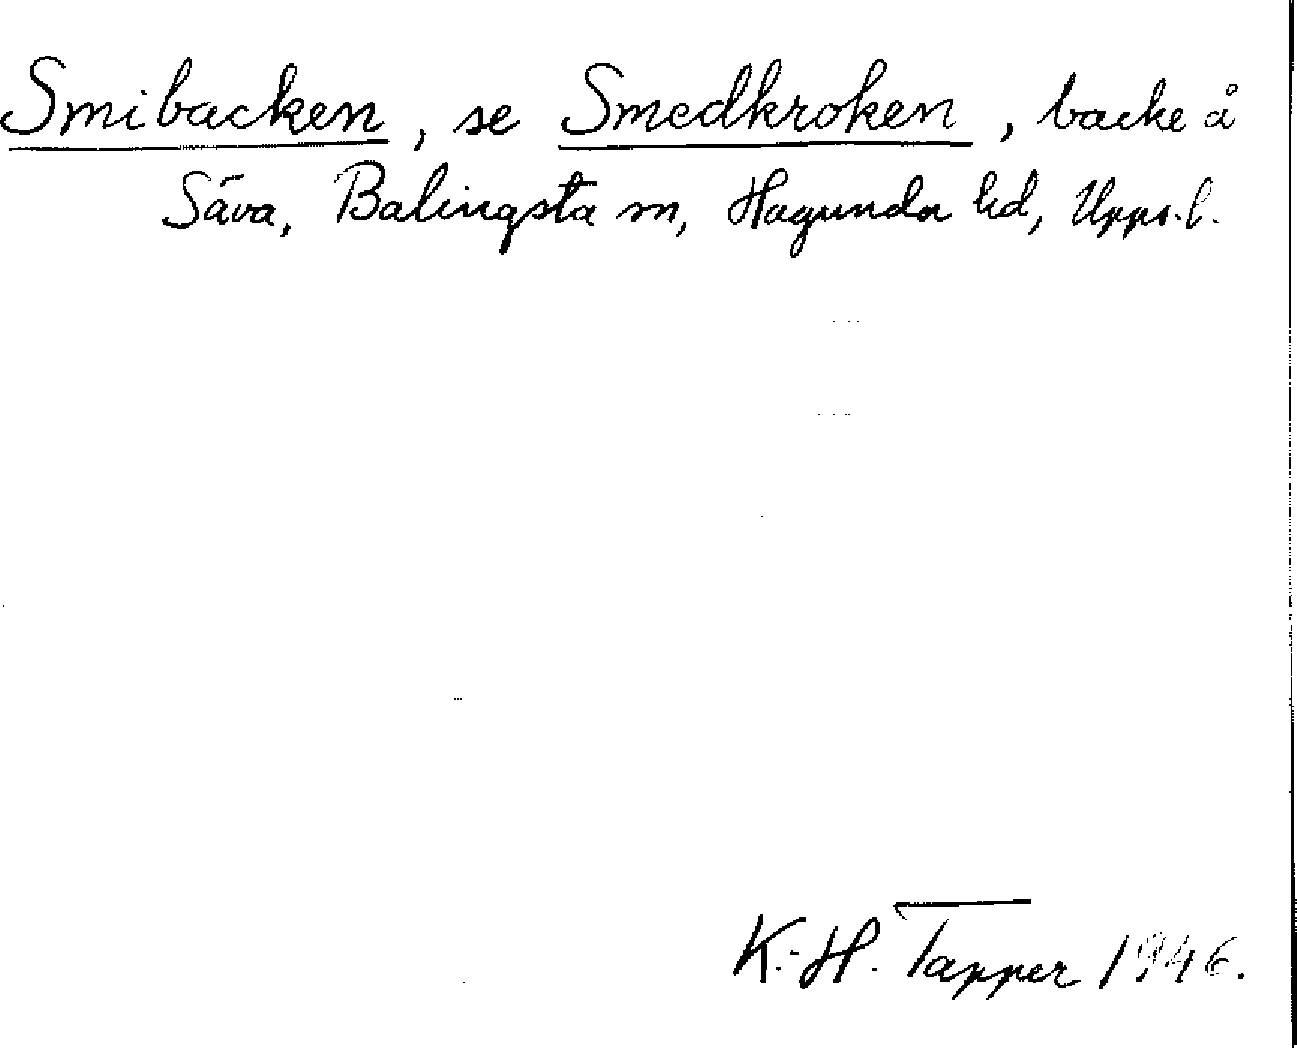 Smibacken, se Smedkroken, backe å
Säva, Balingsta sn, Hagunda hd, Upps. l.
K.-H. Tapper 1946.